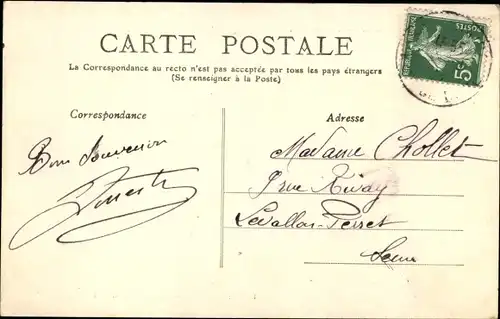 CARTE POSTALE
La Correspondance au recto n'est pas acceptée par tous les pays étrangers
(Se renseigner à la Poste)
Correspondance
Adresse
Bon Souvenir
Madame Chollet
rue Rivay
Levallois-Perret
Seine
POSTES
5